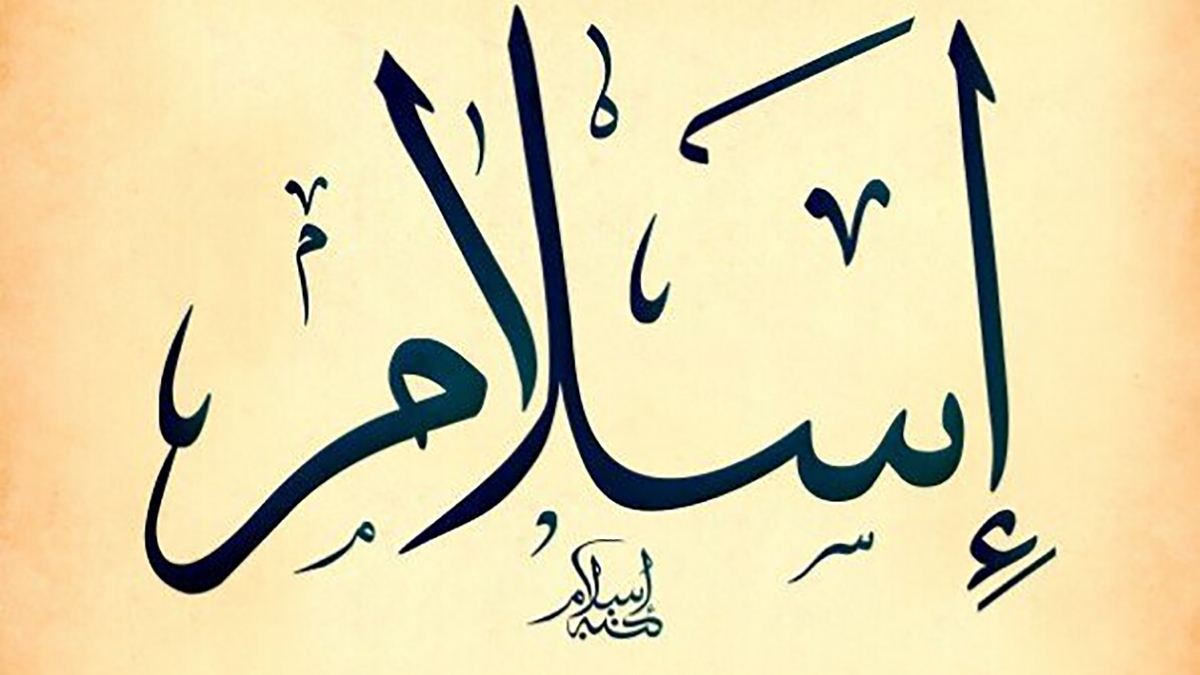 إسلام
إسلام
كتبه